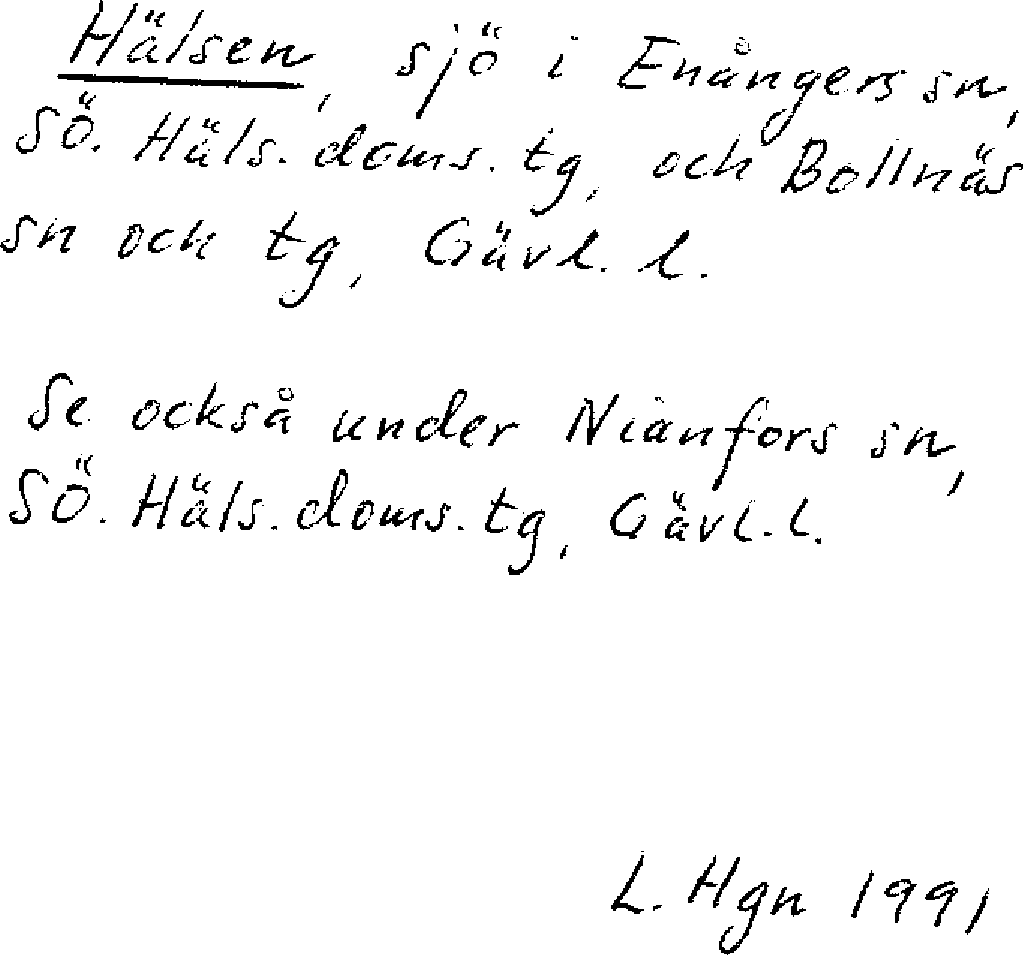 Hälsen, sjö i Enångers sn,
SÖ. Häls. doms. tg, och Bollnäs
sn och tg, Gävl. l.
Se också under Nianfors sn,
SÖ. Häls. doms. tg, Gävl. l.
L. Hgn 1991